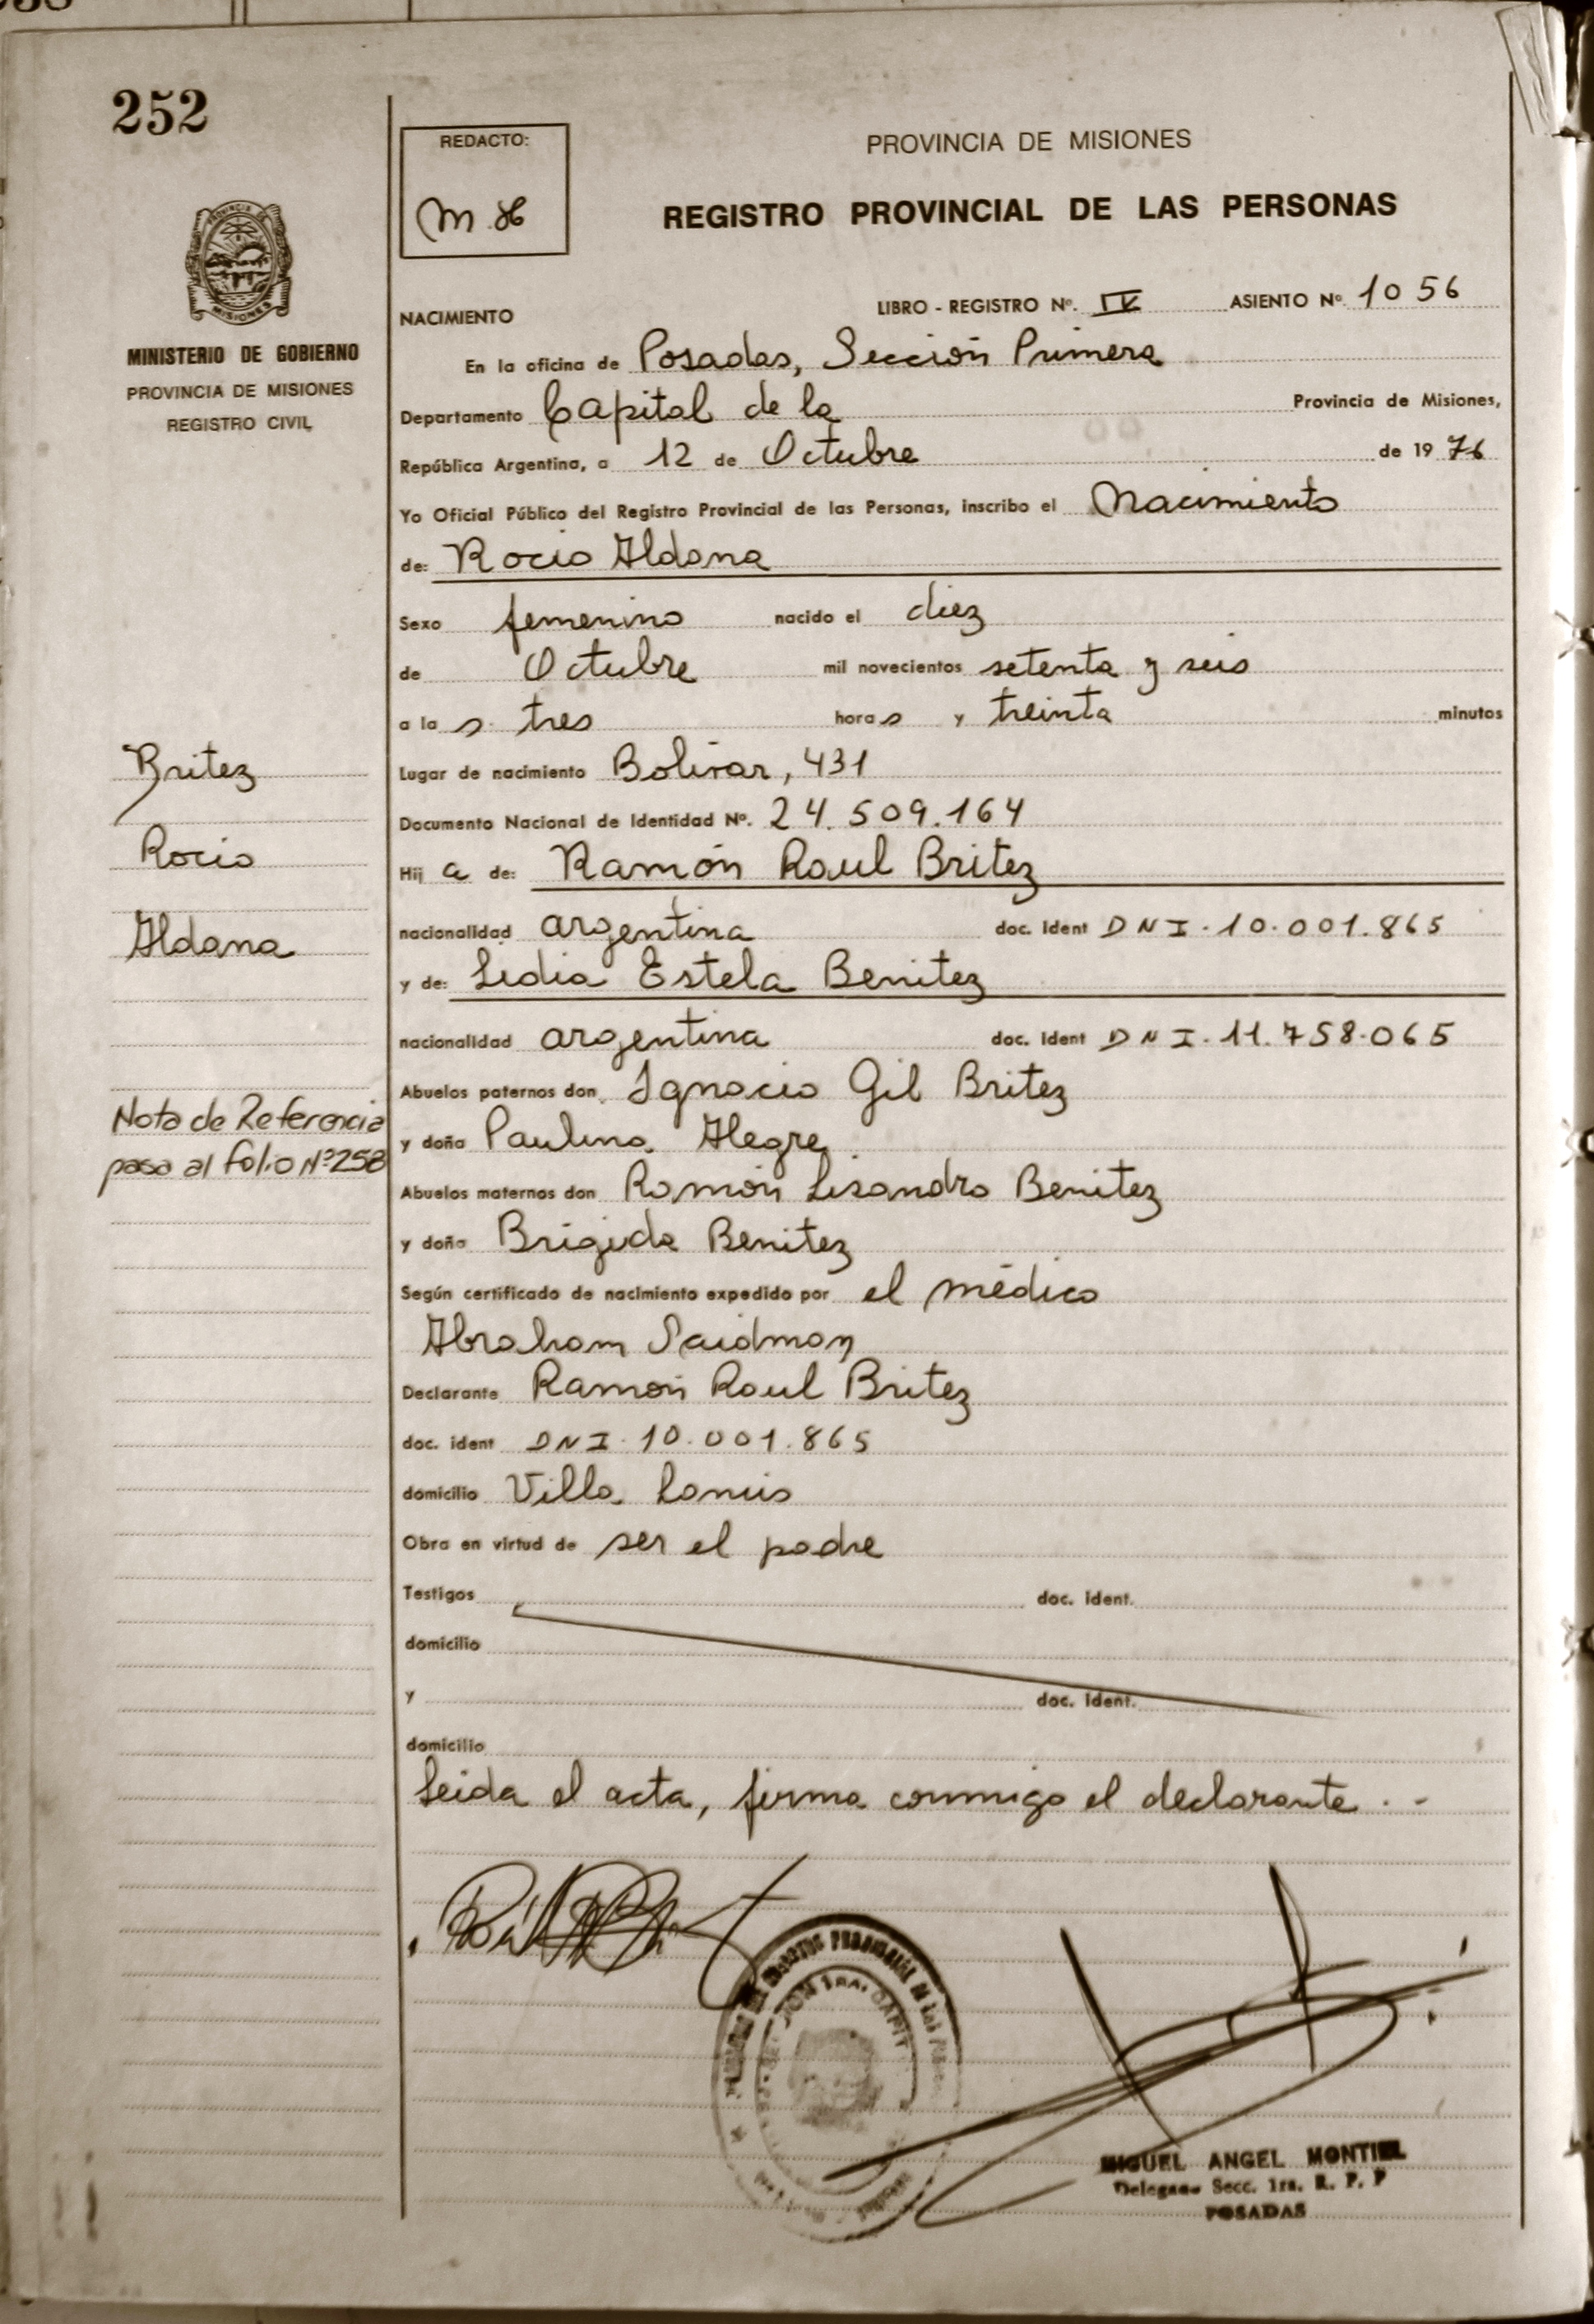 252
REDACTO:
M.H
PROVINCIA DE MISIONES
REGISTRO PROVINCIAL DE LAS PERSONAS
PROVINCIA DE
MISIONES
MINISTERIO DE GOBIERNO
PROVINCIA DE MISIONES
REGISTRO CIVIL
NACIMIENTO LIBRO - REGISTRO Nº. IV ASIENTO Nº 1056
En la oficina de Posadas, Sección Primera
Departamento Capital de la Provincia de Misiones,
República Argentina, a 12 de Octubre de 1976
Yo Oficial Público del Registro Provincial de las Personas, inscribo el Nacimiento
de: Rocio Aldana
Sexo femenino nacido el diez
de Octubre mil novecientos setenta y seis
a la s tres hora s y treinta minutos
Lugar de nacimiento Bolivar, 431
Documento Nacional de Identidad Nº. 24.509.164
Hij a de: Ramón Raul Britez
nacionalidad argentina doc. Ident DNI.10.001.865
y de: Lidia Estela Benitez
nacionalidad argentina doc. Ident DNI.11.758.065
Abuelos paternos don Ignacio Gil Britez
y doña Paulina Alegre
Abuelos maternos don Ramón Lisandro Benitez
y doña Brigida Benitez
Según certificado de nacimiento expedido por el médico
Abraham Saidman
Declarante Ramón Raul Britez
doc. ident DNI.10.001.865
domicilio Villa Lanus
Obra en virtud de ser el padre
Testigos doc. ident.
domicilio
y doc. ident.
domicilio
Leida el acta, firma conmigo el declarante . -
Britez
Rocio
Aldana
Nota de Referencia
pasa al folio Nº 258
MIGUEL ANGEL MONTIEL
Delegado Secc. 1ra. R. P. P
POSADAS